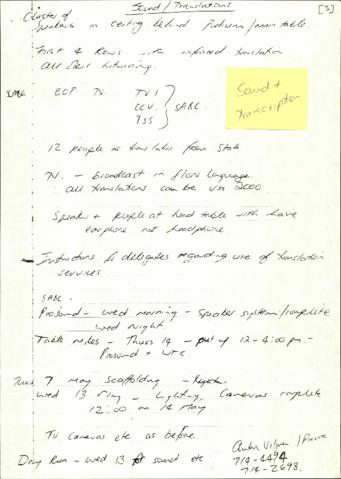 Sound / Translations
[3]
Cluster of
Speakers in ceiling behind Podium / main table.
First 4 Rows with infrared translation
All Seat listening.
BOP TV. TV1
CCV SABC.
TSS
Sound +
Transcription
12 people as translator from State
TV. - broadcast in floor language.
all translations can be via 2000.
Speaker + people at head table with have
earphone not headphone.
Instructions to delegates regarding use of translation
services
SABC.
Prosound - Wed morning - Speaker system / complete
Wed night.
Table mikes - Thurs 14 - put up 12 - 4:00 pm. -
Prosound + WTC
7 May Scaffolding -
Wed 13 May - Lighting, Cameras complete
12:00 on 14 May
TV Cameras etc as before.
Dry Run - Wed 13 sound etc
714-4494
714-2698.